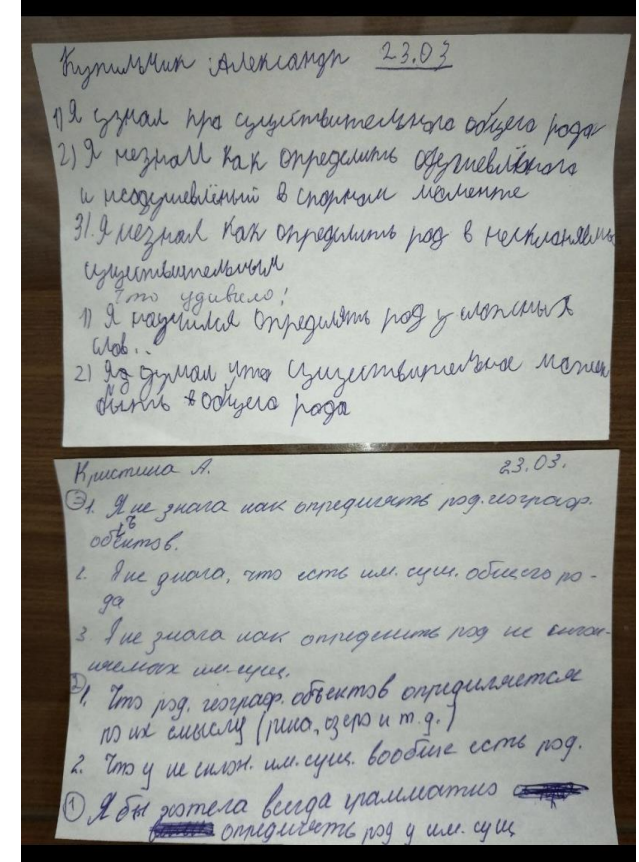 Купильчик Александр 23.03
1) Я узнал про существительного общего рода
2) Я незнал как определить одушевлёного
и неодушевлёный в спорном моменте
3). Я незнал как определить род в несклоняемы
существительным
Что удивило!
1) Я научился определять род у сложных
слов..
2) Я думал что существительное может
быть общего рода
Кристина А. 23.03.
3 1. Я не знала как определять род. географ.
объектов.
2. Я не знала, что есть им. сущ. общего ро-
да
3. Я не знала как определить род не склон-
яемых им. сущ.
2 1. Что род. географ. объектов определяется
по их смыслу (река, озеро и т.д.)
2. Что у не склон. им. сущ. вообще есть род.
1 Я бы хотела всегда грамматно
определять род у им. сущ